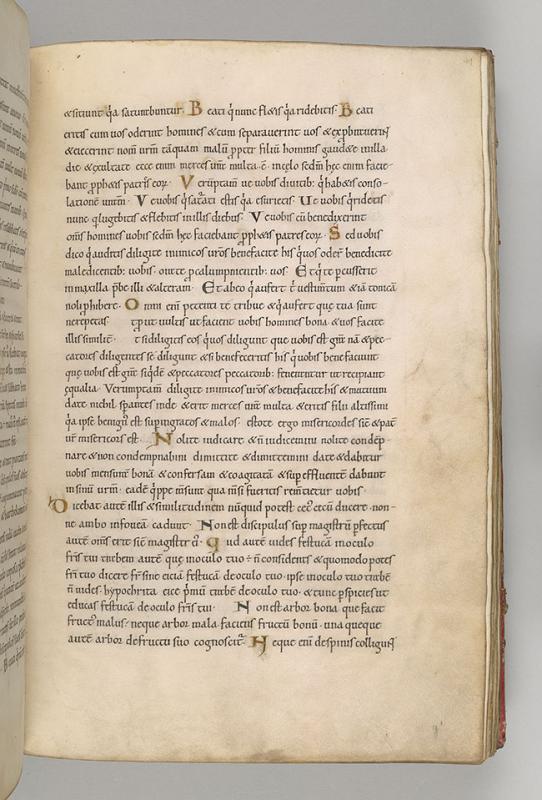 & sitiunt q̄a saturabuntur. Beati q̄ nunc fl&is q̄a ridebitis. Beati
eritis cum vos oderint homines & cum separaverint vos & exp̄bravering
& eiecerint nom̄ vr̄m tāquam malū ꝓpter filiū hominis gaud&e in illa
die & exultate ecce enim merces vr̄a multa ē. in celo sedm̄ hec enim facie
bant ꝓph&is patres eor̄. Verūptam̄ ve vobis divitib; q̄ hab&is conso
lationē vr̄am. Ve vobis q̄ saturati estis q̄a esurietis. Ue vobis q̄ rid&is
nunc q̄ lugebitis & flebitis in illis diebus. Ve vobis cū benedixerint
om̄s homines vobis sedm̄ hec faciebant ꝓph&is patres eor̄. Sed vobis
dico q̄ auditis diligite inimicos vr̄os benefacite his q̄ vos oder̄t benedicite
maledicentib; vobis. orate ꝓ calumpniantib; vos. Et q̄ te percusserit
in maxilla p̄be illi & alteram. Et ab eo q̄ aufert t̄ vestim̄tum &iā tonicā
noli ꝓhibere. Omni enī petenti te tribue & q̄ aufert que tua sunt
ne repetas. ꝓut vultis ut faciant vobis homines bona & vos facite
illis simili&. t si diligitis eos q̄ vos diligunt que vobis est gr̄a nā & pec
catores diligentes se diligunt & si benefeceritis his q̄ vobis benefaciunt
que vobis est gr̄a siq̄dē & peccatores peccatorib; fenerantur ut recipiant
equalia. Verumptam̄ diligite inimicos vr̄os & benefacite his & mutuum
date nichil sperantes inde & erit merces vr̄a multa & eritis filii altissimi
q̄a ipse benign' est sup ingratos & malos. estote ergo misericordes sic̄ & pat̄
vr̄ misericors est. Nolite iudicare & n̄ iudicemini nolite condēp
nare & non condempnabimi dimittite & dimittemini date & dabitur
vobis mensurā bonā & confersam & coagitatā & sup effluentē dabunt
in sinū vr̄m. eadē q̄ppe m̄sura qua m̄si fueritis remetietur vobis
Dicebat autē illis & similitudinem nūquid potest cec' cecū ducere. non
ne ambo in foveā cadunt. Non est discipulus sup magistrū ꝓfectus
autē om̄s erit sic̄ magister ei'. Quid autē vides festucā in oculo
fr̄is tui trabem autē que in oculo tuo ÷ n̄ consideras & quomodo potes
fr̄i tuo dicere fr̄ sine eiciā festucā de oculo tuo. ipse in oculo tuo trabē
n̄ vides. hypochrita eice p̄mū trabē de oculo tuo. & tunc p̄spicies ut
educas festucā de oculo fr̄is tui. Non est arbor bona que facit
fruct' malus. neque arbor mala faciens fructū bonū. una queque
autē arbor de fructu suo cognoscit̄. Neque enī de spinis colligunt